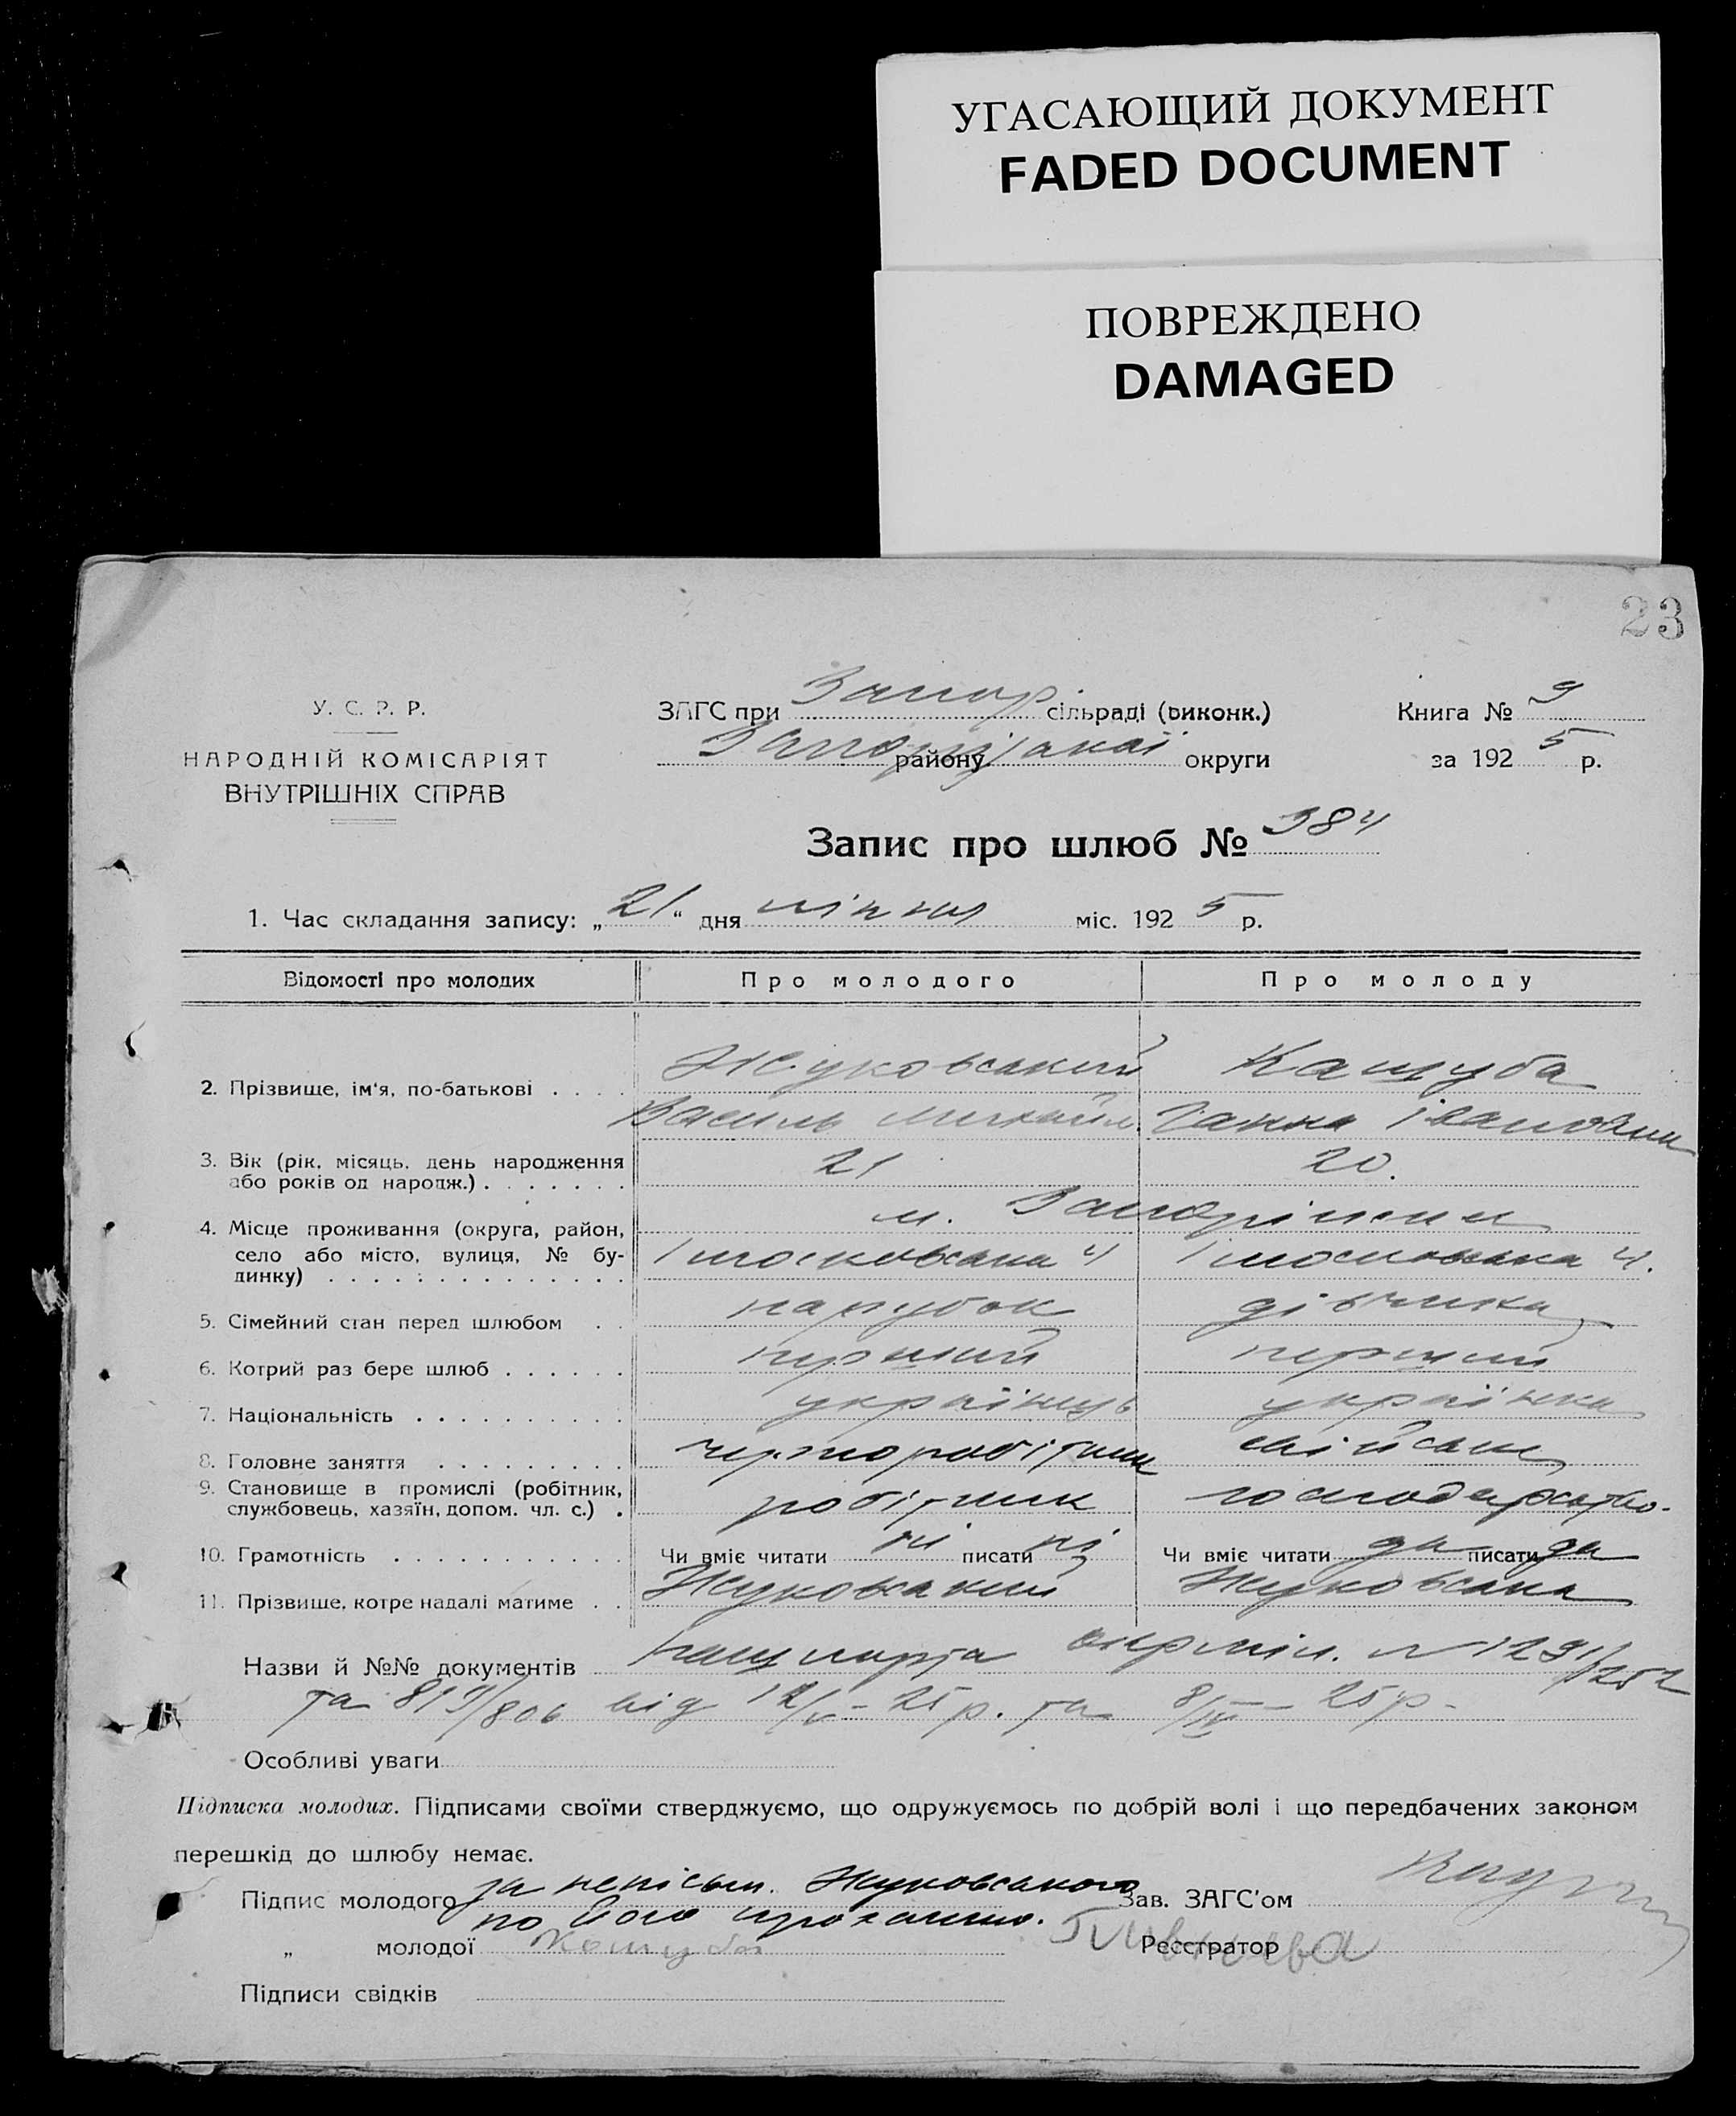 УГАСАЮЩИЙ ДОКУМЕНТ
FADED DOCUMENT
ПОВРЕЖДЕНО
DAMAGED
23
У. С. Р. Р.
НАРОДНІЙ КОМІСАРІЯТ
ВНУТРІШНІХ СПРАВ
ЗАГС при Запор. сільраді (виконк.)
Запорізької району округи
Книга № 9
за 1925 р.
Запис про шлюб № 384
1. Час складання запису: „21“ дня липня міс. 1925 р.
Відомості про молодих Про молодого Про молоду
2. Прізвище, ім‘я, по-батькові . . . . Жуковський Кашуба
Василь Михайл. Ганна Івановни
3. Вік (рік, місяць, день народження 21 20.
або років од народж.) . . . . . . .
4. Місце проживання (округа, район, м. Запоріжжя
село або місто, вулиця, № бу-
динку) . . . . . . . . . . . . . . І московська 4 І московська 4.
5. Сімейний стан перед шлюбом . . парубок дівчина
6. Котрий раз бере шлюб . . . . . . перший перший
7. Національність . . . . . . . . . . українець українка
8. Головне заняття . . . . . . . . . чорноробітник хатнє
9. Становище в промислі (робітник, робітник господарство.
службовець, хазяїн, допом. чл. с.) .
10. Грамотність . . . . . . . . . . . Чи вміє читати ні писати ні Чи вміє читати да писати да
11. Прізвище, котре надалі матиме . . Жуковський Жуковська
Назви й №№ документів пашпорта окрміл. № 1291/1252
та 819/806 від 12/V - 25 р. та 8/IV - 25 р.
Особливі уваги
Підписка молодих. Підписами своїми стверджуємо, що одружуємось по добрій волі і що передбачених законом
перешкід до шлюбу немає.
Підпис молодого за непісьм. Жуковського
по його проханню.
Зав. ЗАГС’ом
„ молодої Кашуба
Реєстратор
Підписи свідків